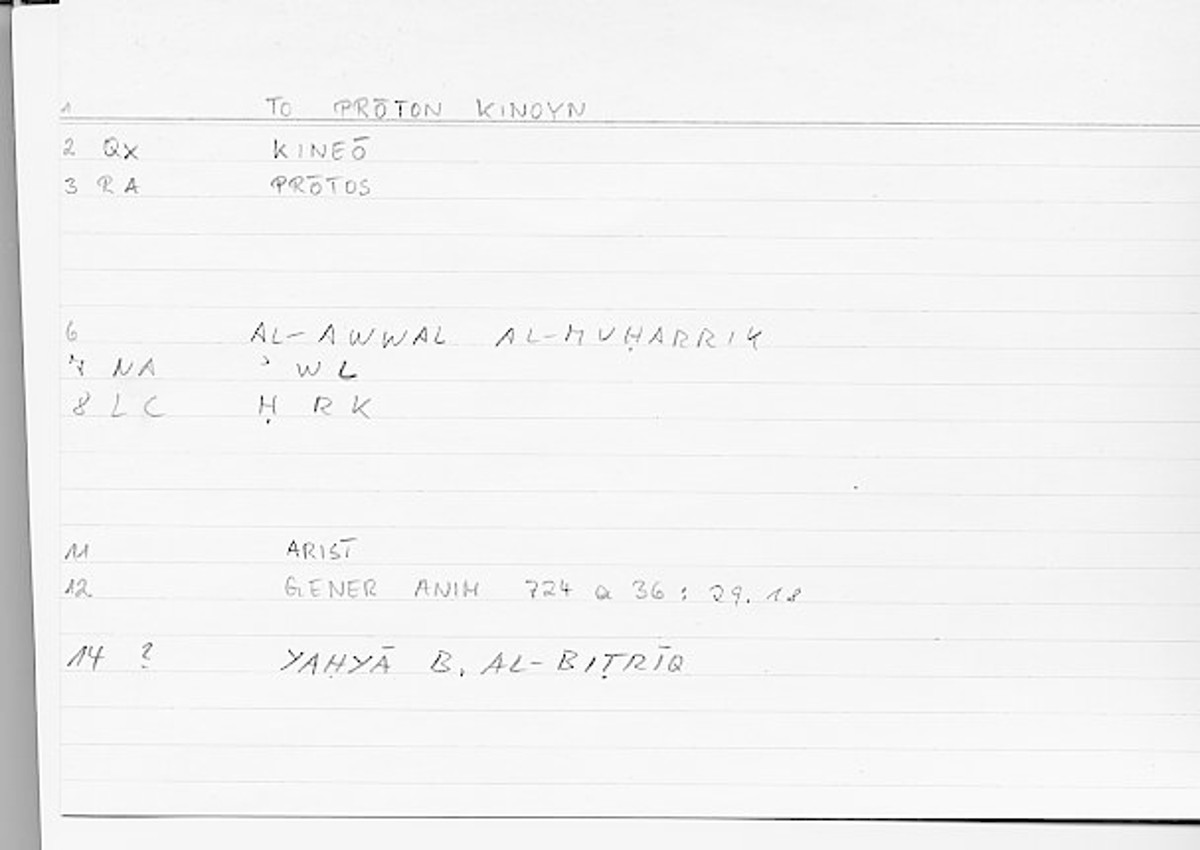 1 TO PRŌTON KINOYN
2 Qx KINEŌ
3 RA PRŌTOS
6 AL-AWWAL AL-MUḤARRIK
7 NA ʾ W L
8 LC Ḥ R K
11 ARIST
12 GENER ANIM 724 a 36 : 29.18
14 ? YAḤYĀ B. AL-BIṬRĪQ